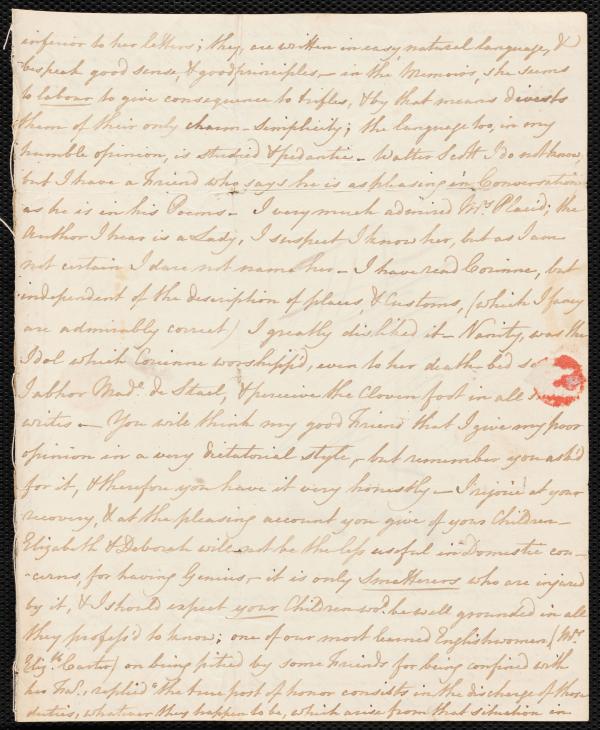 inferior to her letters; they, are written in easy, natural language, &
bespeak good sense, & good principles, – in the Memoirs, she seems
to labour to give consequence to trifles, & by that means divests
them of their only charm – simplicity; the language too, in my
humble opinion, is studied & pedantic – Walter Scott I do not know,
but I have a Friend who says he is as pleasing in Conversation
as he is in his Poems – I very much admired Mrs. Placid; the
Author I hear is a Lady, I suspect I know her, but as I am
not certain I dare not name her – I have read Corinne, but
independent of the description of places, & Customs, (which I fancy
are admirably correct) I greatly disliked it – Vanity, was the
Idol which Corinne worshipp'd, even to her death-bed
I abhor Made. de Stael, & perceive the Cloven foot in all
writes – You will think my good Friend that I give my poor
opinion in a very dictatorial style, – but remember you ask'd
for it, & therefore you have it very honestly – I rejoice at your
recovery, & at the pleasing account you give of your Children –
Elizabeth & Deborah will not be the less useful in Domestic con-
-cerns, for having Genius, – it is only Smatterers who are injured
by it, & I should expect your Children wod. be well grounded in all
they profess'd to know; one of our most learned Englishwomen (Mrs.
Elizth. Carter) on being pitied by some Friends for being confined with
her Far., replied "the true post of honor consists in the discharge of those
duties, whatever they happen to be, which arise from that situation in